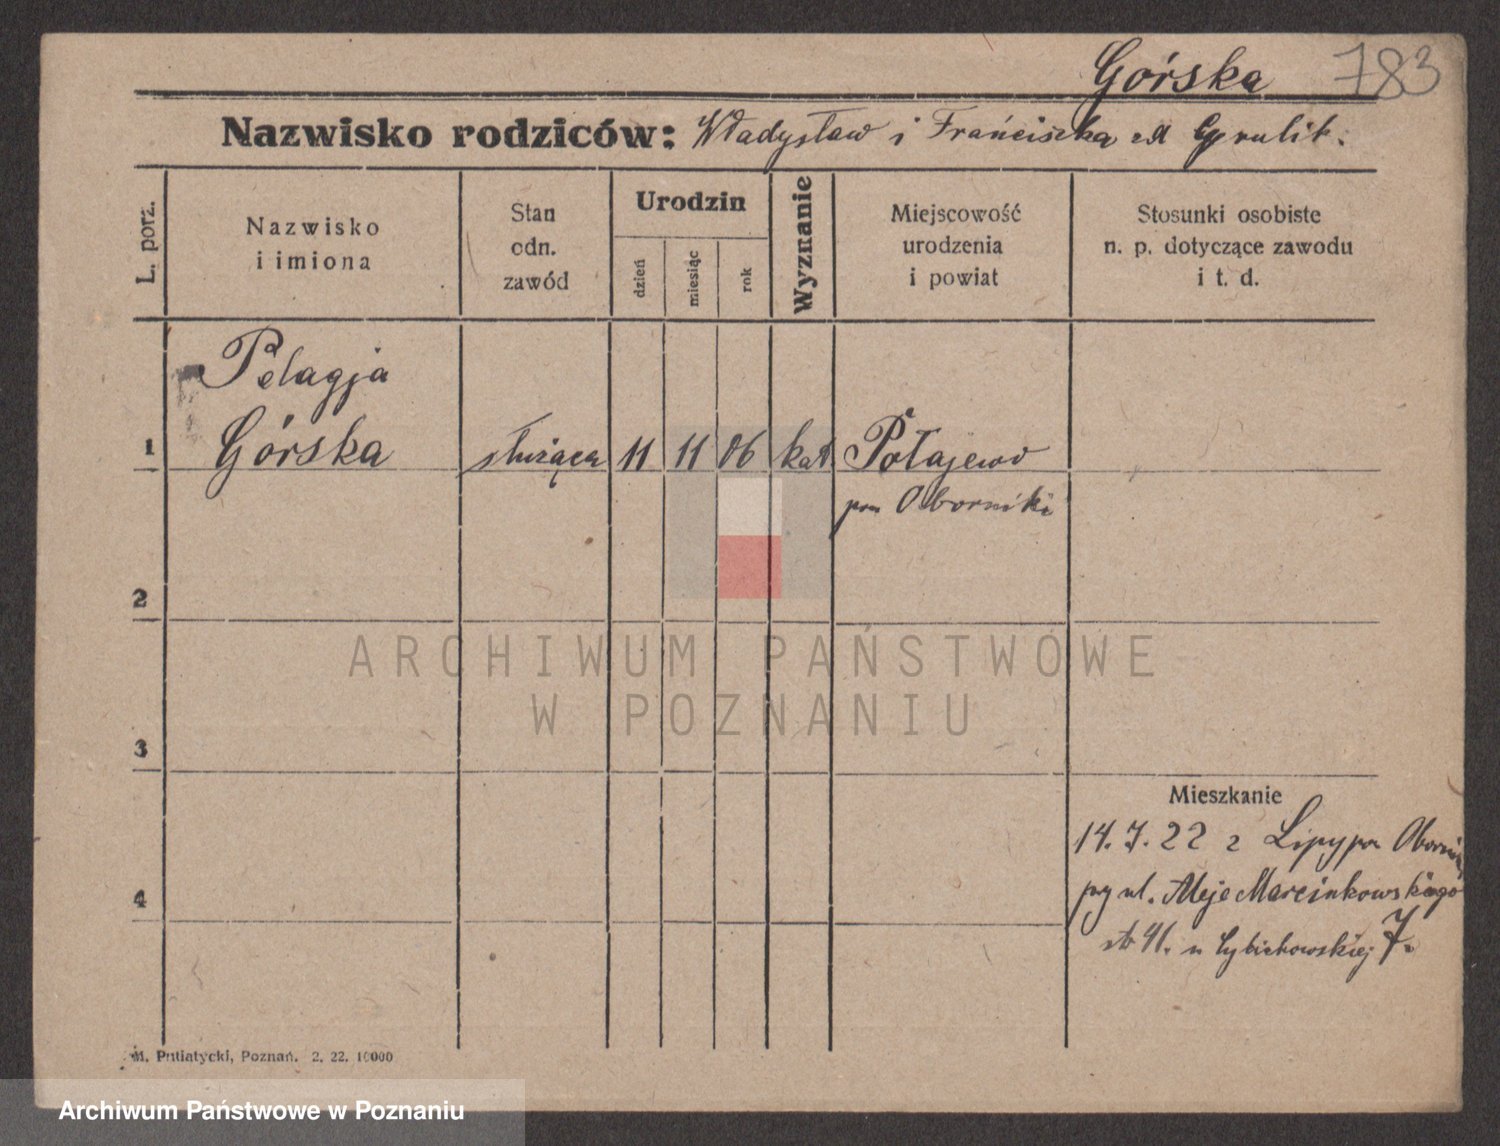 Górska 783
Nazwisko rodziców: Władysław i Frańciszka zd Grulik.
L. porz.
Nazwisko
i imiona
Stan
odn.
zawód
Urodzin
dzień
miesiąc
rok
Wyznanie
Miejscowość
urodzenia
i powiat
Stosunki osobiste
n. p. dotyczące zawodu
i t. d.
Pelagja
1 Górska służąca 11 11 06 kat Połajewo
pow Oborniki
2
ARCHIWUM PAŃSTWOWE
W POZNANIU
3
Mieszkanie
14. 7. 22 z Lipy pow
4
ul. Aleje Marcinkowskiego
41. u 7.
M. Putiatycki, Poznań. 2. 22. 10000
Archiwum Państwowe w Poznaniu